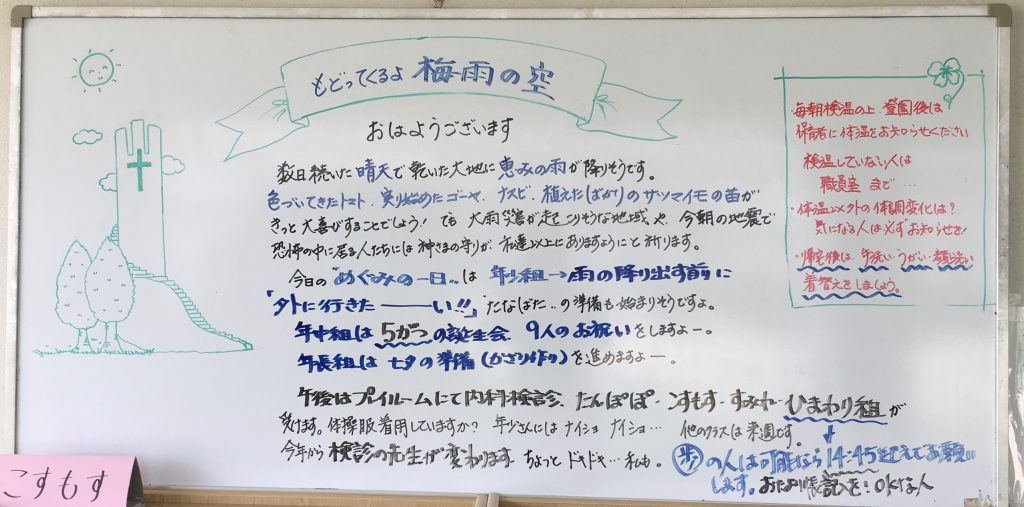 もどってくるよ 梅雨の空
おはようございます
数日続いた晴天で乾いた大地に恵みの雨が降りそうです。
色づいてきたトマト、実り始めたゴーヤ、ナスビ、植えたばかりのサツマイモの苗が
きっと大喜びすることでしょう! でも 大雨災害が起こりそうな地域や、今朝の地震で
恐怖の中に居る人たちには神さまの守りが、私達以上にありますようにと祈ります。
今日の"めぐみの一日"は 年少組→雨の降り出す前に
「外に行きたーーい!!」"たなばた"の準備も始まりそうですよ。
年中組は 5がつの誕生会、9人のお祝いをしますよー。
年長組は 七夕の準備(かざり作り)を進めますよー。
午後はプレイルームにて内科検診、たんぽぽ・こすもす・すみれ・ひまわり組が
受けます。体操服着用していますか? 年少さんにはナイショ ナイショ… 他のクラスは来週です。
今年から検診の先生が変わります。ちょっと ドキドキ…私も。
歩の人は可能なら14:45迎えでお願い
します。おたより帳記入を!OKな人
・毎朝検温の上、登園後は
保育者に体温をお知らせください
検温していない人は
職員室まで…
・体温以外の体調変化は?
気になる人は必ずお知らせを!
・帰宅後は、手洗い・うがい・顔洗い
着替えをしましょう。
こすもす